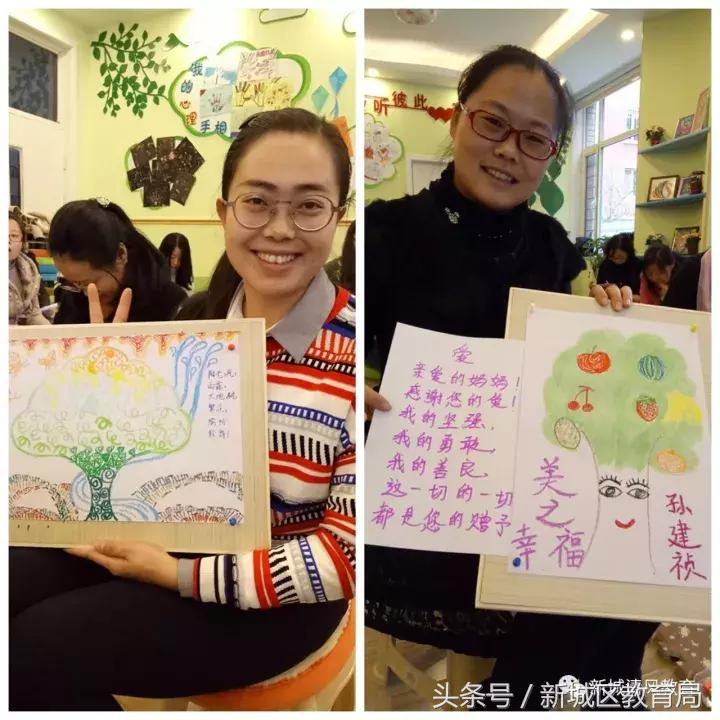 我的心理
手相
阳光、
雨露、
大地、
繁花,
听彼此
爱
亲爱的妈妈!
感谢您的爱!
我的坚强,
我的勇敢,
我的善良
这一切的一切
都是您的赠予
美之幸福
孙建祯
新城清风教育
头条号/新城区教育局